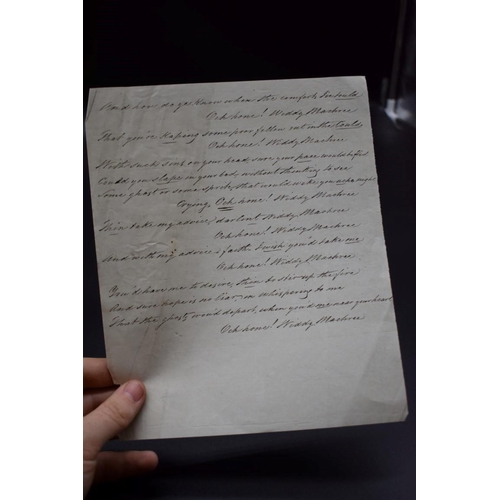 And how do you know when the comforts I've tould
Och hone! Widdy Machree
That you're Kaping some poor fellow out in the Could
Och hone! Widdy Machree
With such sins on your head, sure your pace would be fled
Could you slape in your bed, without thinking to see
Some ghost or some sprite, that would wake you each night
Crying, Och hone! Widdy Machree
Thin take my advice, darlint Widdy Machree
Och hone! Widdy Machree
And with my advice, faith I wish you'd take me
Och hone! Widdy Machree
You'd have me to desire, thin to stir up the fire
And sure hope is no liar, in whispring to me
That the ghosts wou'd depart, when you'd me near your heart
Och hone! Widdy Machree